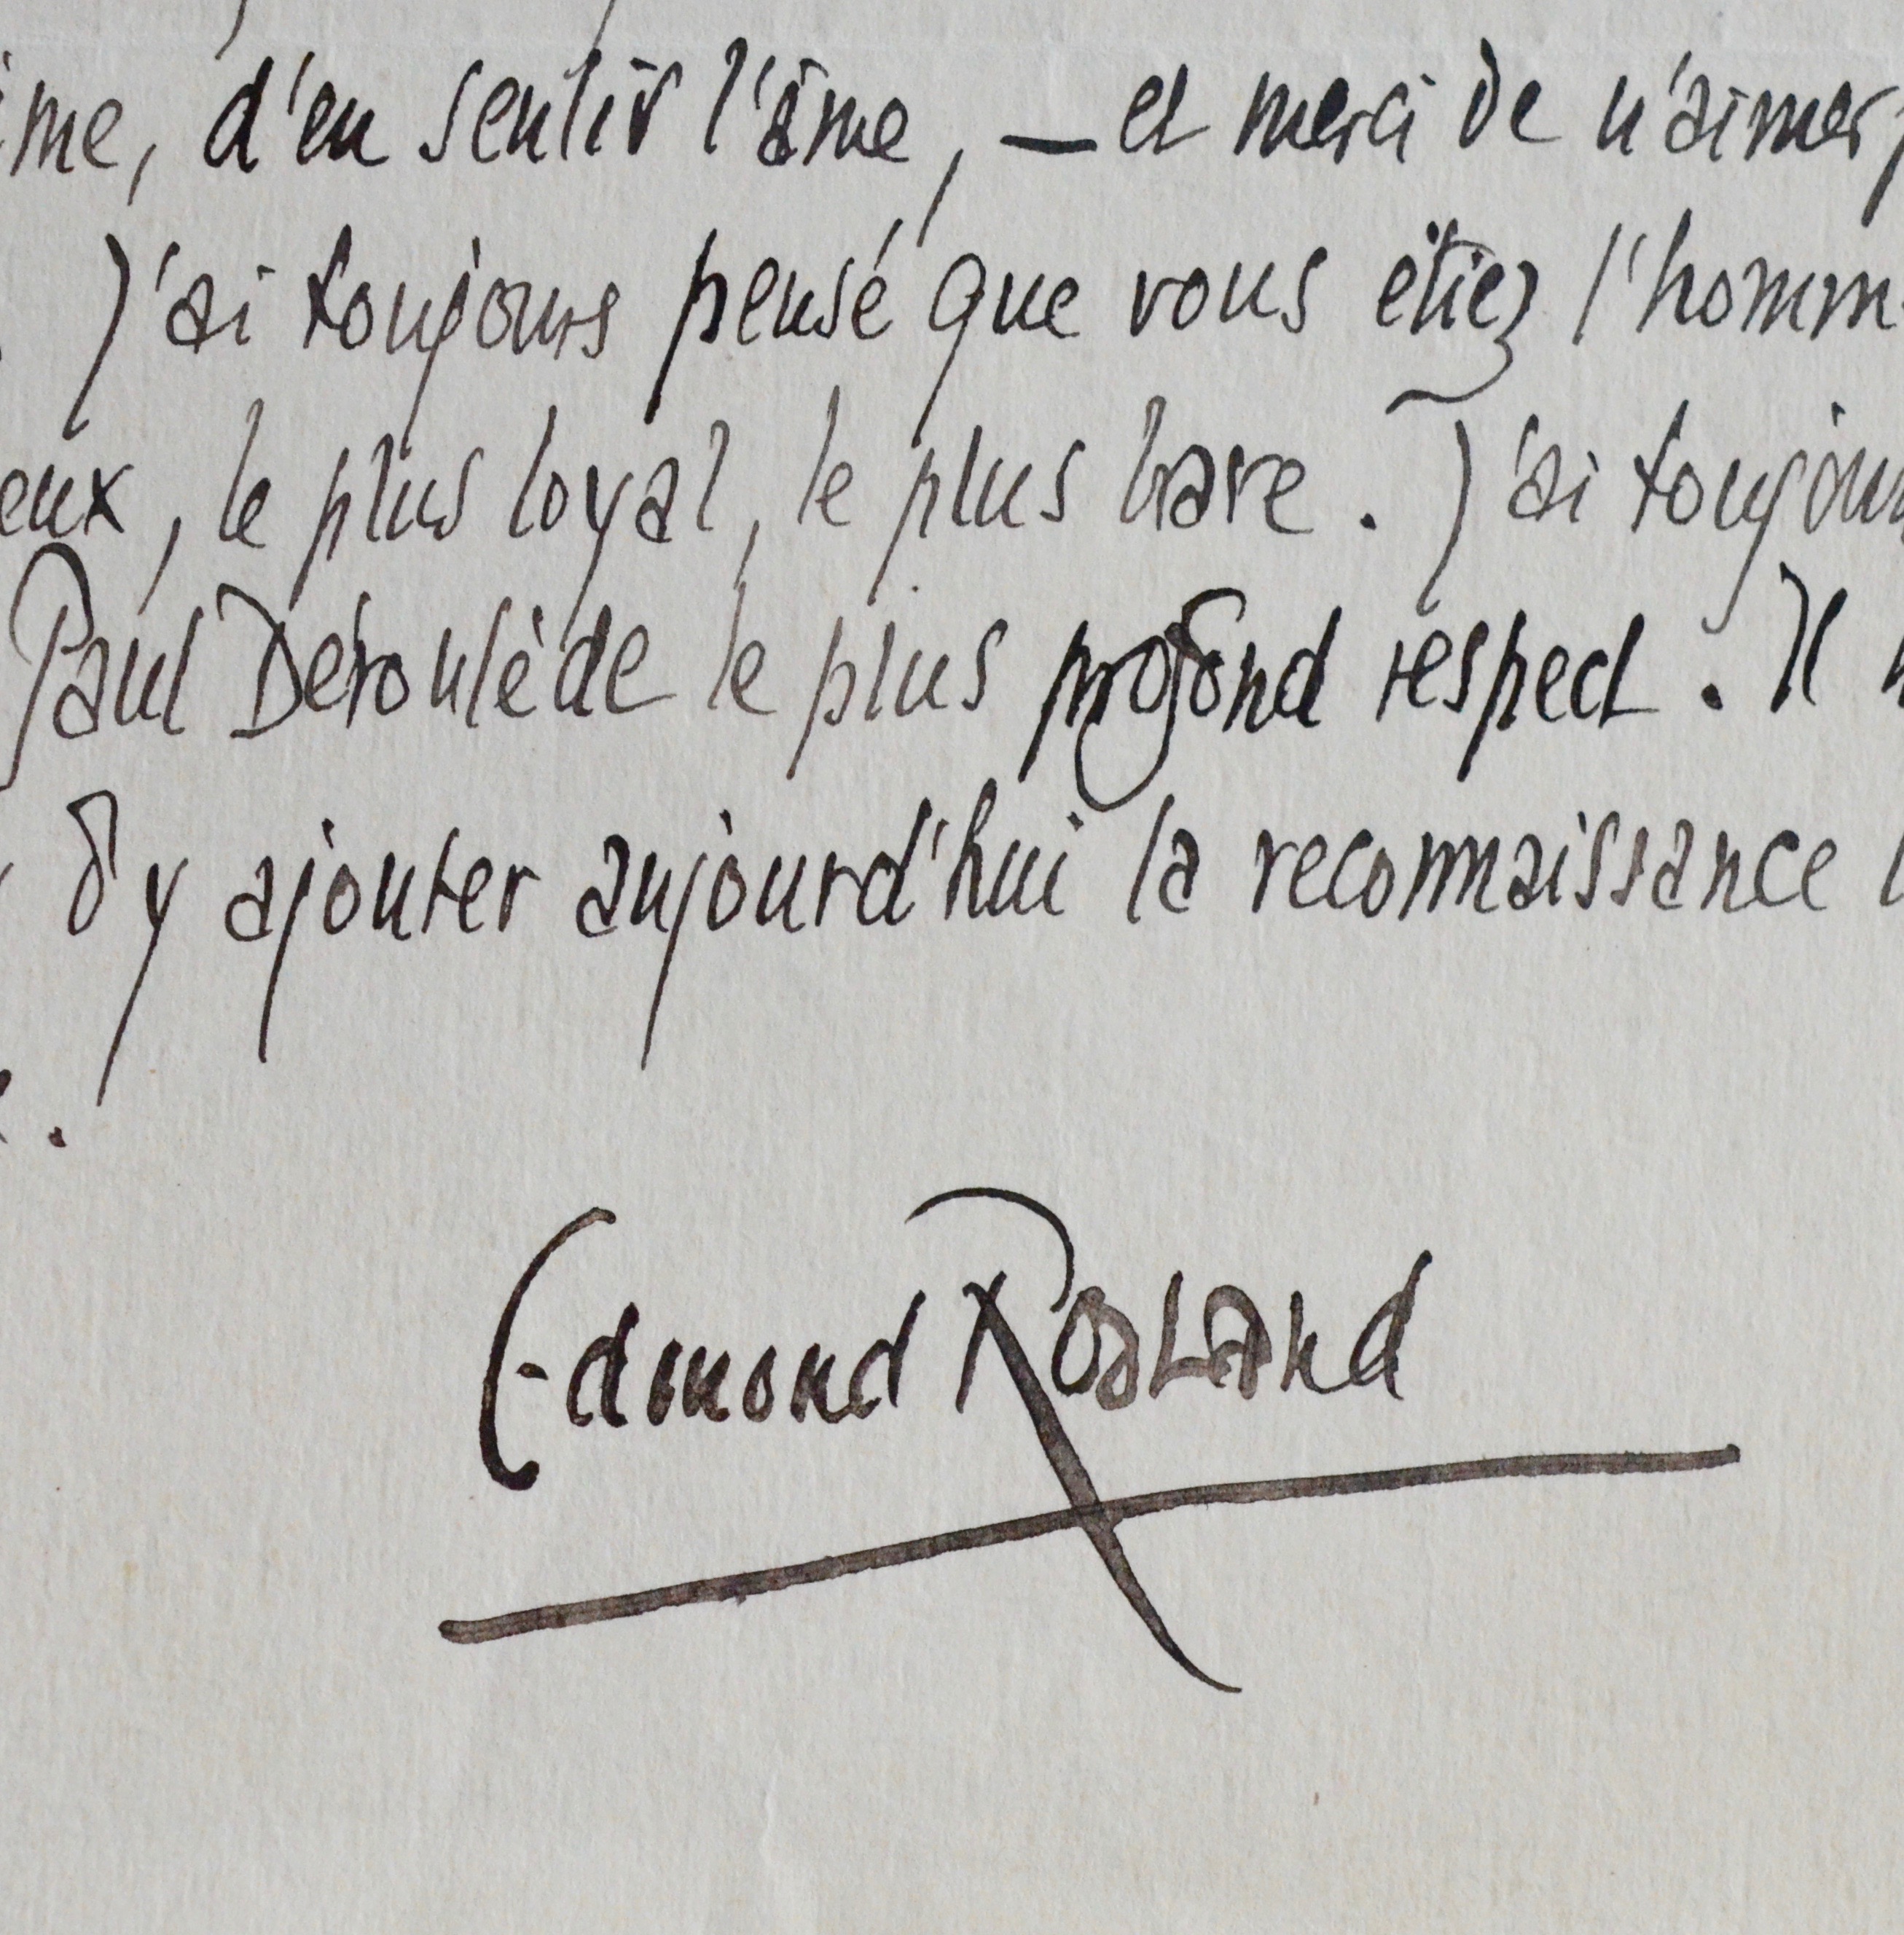 ime, d'en sentir l'âme, — et merci de n'aimer p
J'ai toujours pensé que vous étiez l'homm
eux, le plus loyal, le plus brave. J'ai toujou
Paul Déroulède le plus profond respect. Il
d'y ajouter aujourd'hui la reconnaissance l
.
Edmond Rostand